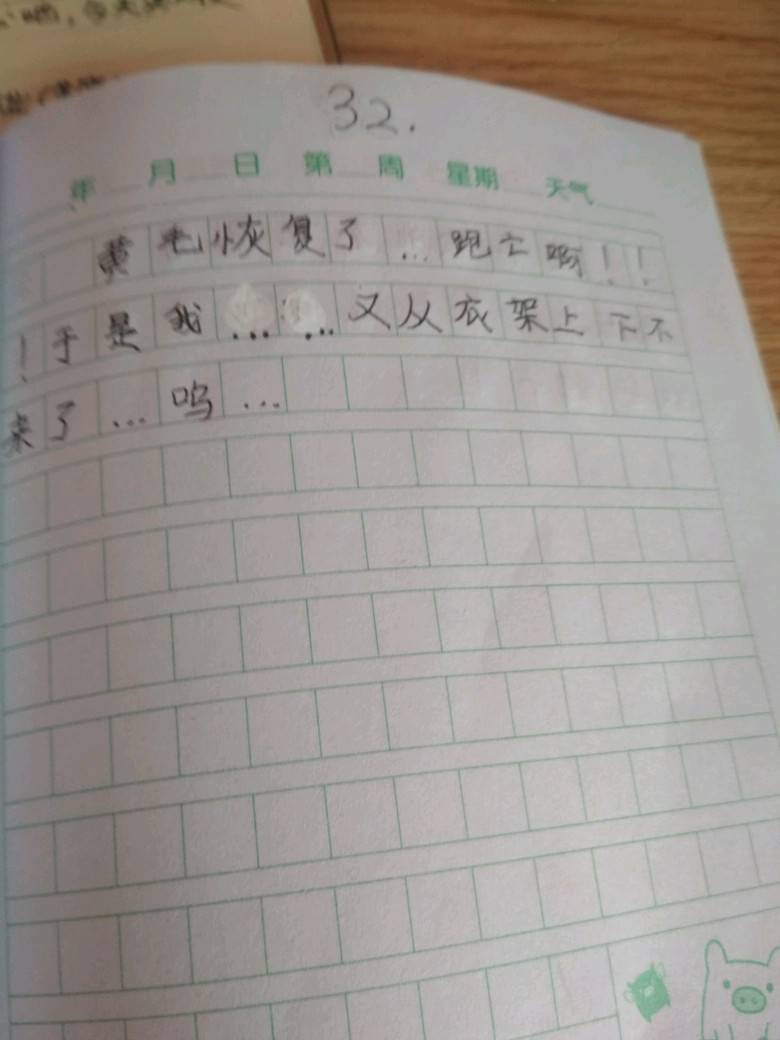 32.
年 月 日 第 周 星期 天气
黄毛恢复了…跑亡啊！！
！于是我……又从衣架上下不
来了…呜…